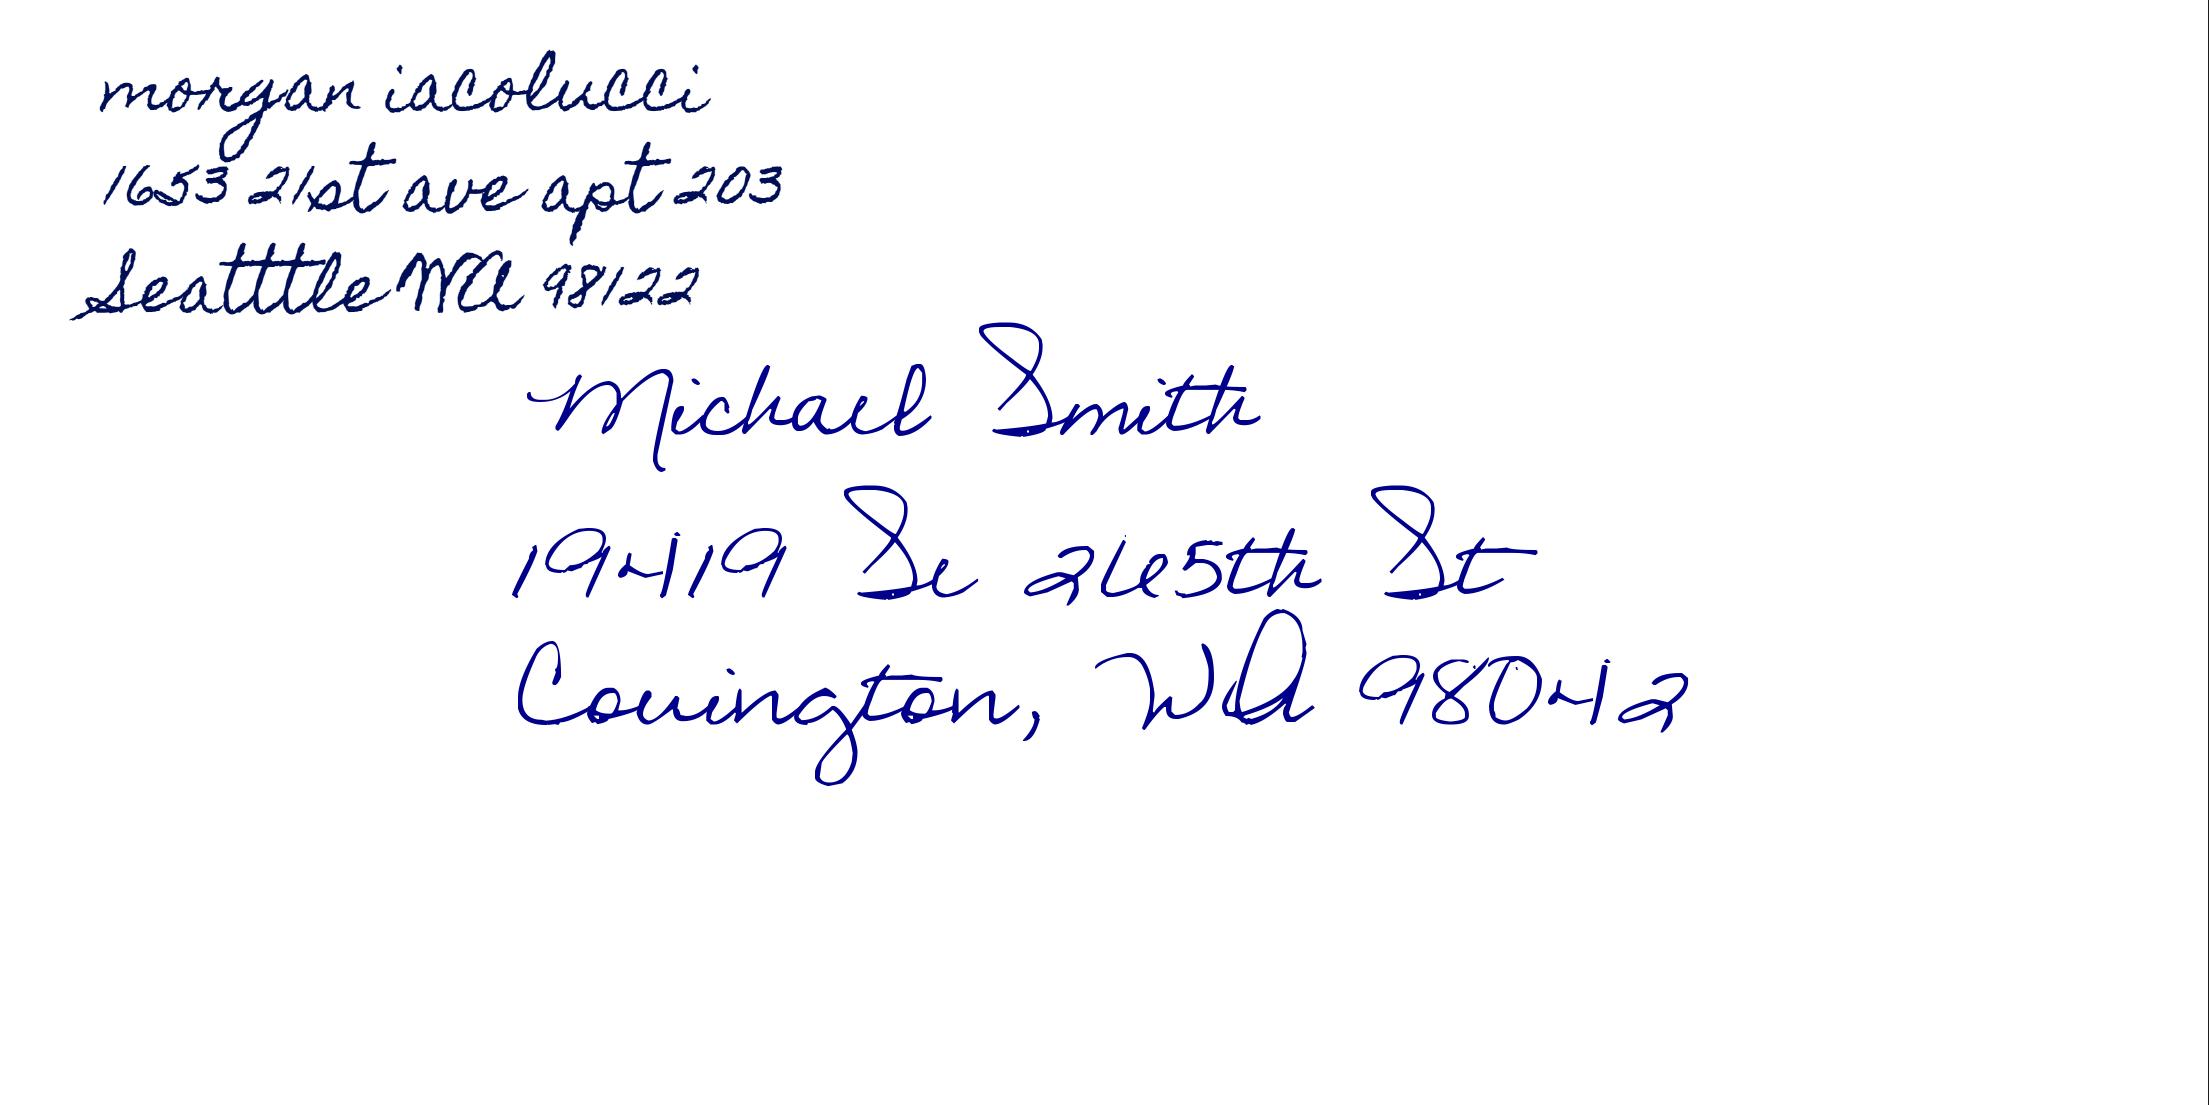 morgan iacolucci
1653 21st ave apt 203
Seatttle WA 98122
Michael Smith
19419 Se 265th St
Covington, WA 98042